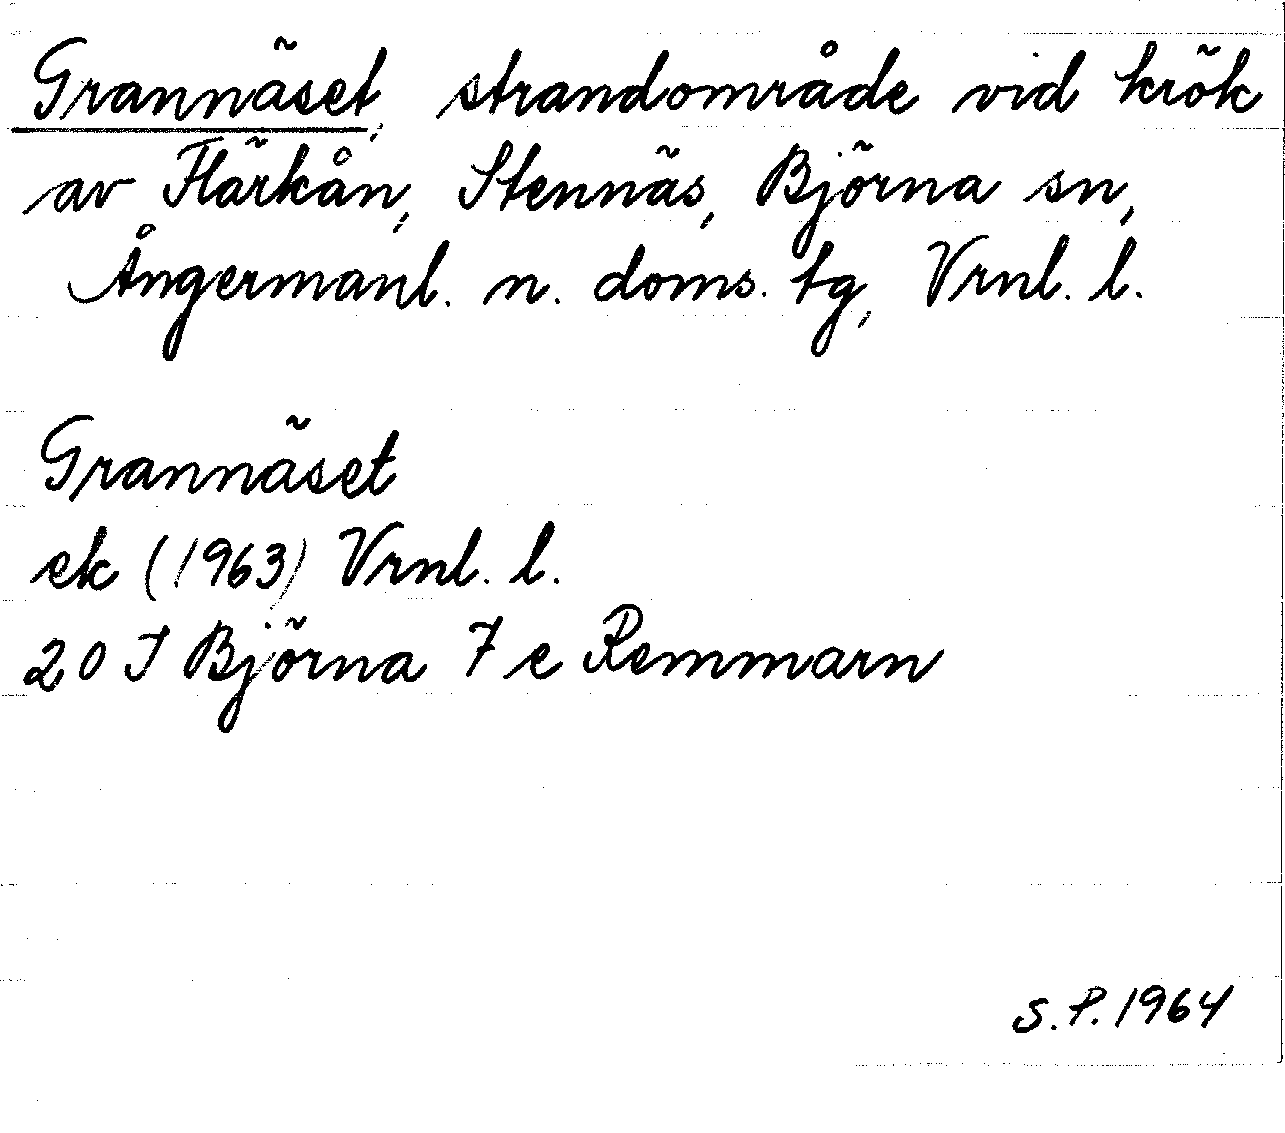 Grannäset, strandområde vid krök
av Flärkån, Stennäs, Björna sn,
Ångermanl. n. doms. tg, Vrnl. l.
Grannäset
ek (1963) Vrnl. l.
20 J Björna 7 e Remmarn
S. P. 1964